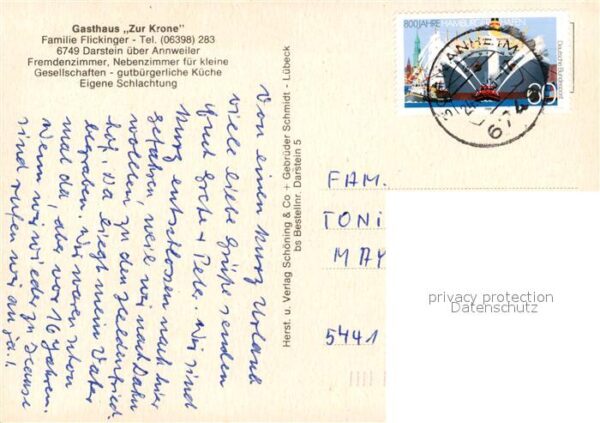 Gasthaus „Zur Krone"
Familie Flickinger - Tel. (06398) 283
6749 Darstein über Annweiler
Fremdenzimmer, Nebenzimmer für kleine
Gesellschaften - gutbürgerliche Küche
Eigene Schlachtung
Von einen Kurz Urlaub
viele liebe Grüße senden
Euch Grete + Peter. Wir sind
kurz entschlossen nach hier
gefahren, weil wir nach Dahn
wollten zu den Heldenfried-
hof. Da liegt mein Vater
begraben. Wir waren schon
mal da, aber vor 16 Jahren.
Wenn wir wieder zu Hause
sind rufen wir an ja!
Herst. u. Verlag Schöning & Co + Gebrüder Schmidt - Lübeck
bs Bestellnr. Darstein 5
800 JAHRE HAMBURGER HAFEN
Deutsche Bundespost
60
674
FAM.
TONI
MAY
5441
privacy protection
Datenschutz